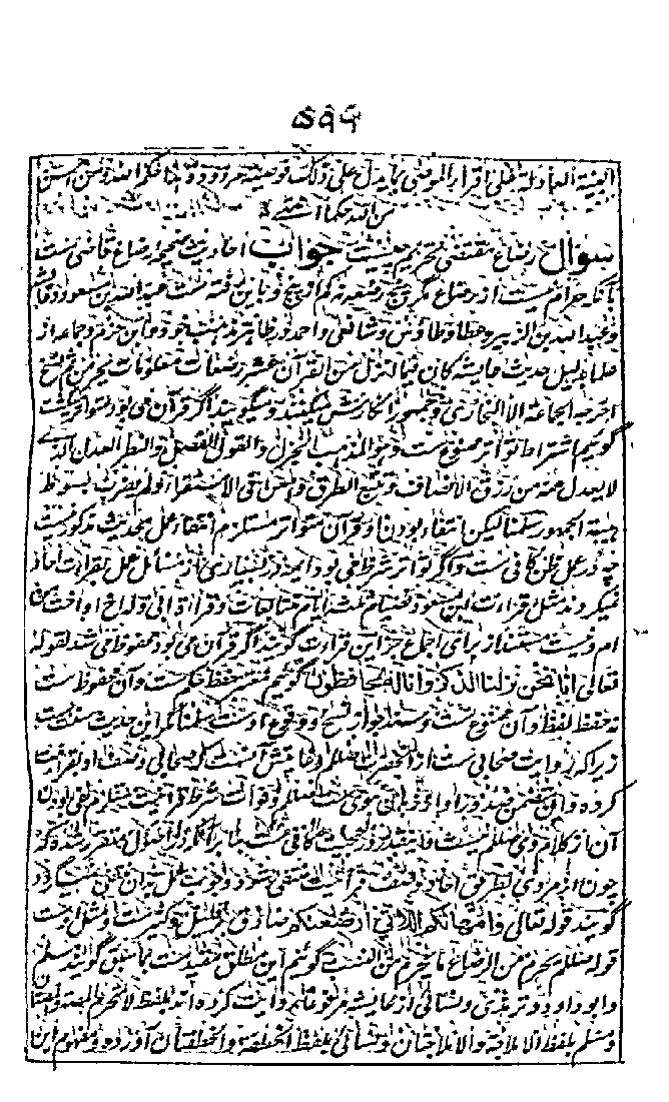 ۵۹۹
البینة العادلة علی اقرار الموصی بما یدل علی ذلک فوصیته مردودة
من الله حکما انتهی
سوال رضاع مقتضی تحریم چیست جواب احادیث صحیحه رضاع قاضی ست
بآنکه حرام نیست از رضاع مگر پنج رضعه نه کم از پنج و باین رفته ست عبدالله بن مسعود و عائشه
و عبدالله بن الزبیر و عطا و طاؤس و شافعی و احمد در ظاهر مذهب خود و ابن حزم و جماعه از
علما بدلیل حدیث عایشه کان فیما انزل من القرآن عشر رضعات معلومات یحرمن ثم نسخ
اخرجه الجماعة الا البخاری و جمهور انکارش میکنند و میگویند اگر قرآن می بود متواتر میگشت
گوئیم اشتراط تواتر ممنوع ست و هو المذهب الجزل و القول الفصل و النظر العدل الذی
لا یعدل عنه من رزق الانصاف و تتبع الطرق و امعن فی الاستقراء و لم یضرب بسوط
هیبة الجمهور سلمنا لیکن انتفاء بودن او قرآن متواتر مستلزم انتفاء عمل بحدیث مذکور نیست
چه در عمل ظن کافی ست و اگر تواتر شرط می بود ایمه در بسیاری از مسائل عمل بقراءت آحاد
نمیکردند مثل قراءت ابن مسعود فصیام ثلثة ایام متتابعات و قراءة ابی و له اخ او اخت من
ام و نیست مستند از برای اجماع جز این قراءت گویند اگر قرآن می بود محفوظ می شد لقوله
تعالی انا نحن نزلنا الذکر و انا له لحافظون گوئیم معتبر حفظ حکم ست و آن محفوظ ست
نه حفظ لفظ و آن ممنوع ست و سند جواز نسخ و وقوع اوست سلمنا مگر این حدیث سنت ست
زیرا که روایت صحابی ست از آنحضرت صلعم و غایتش آنست که صحابی وصف او بقرآنیت
کرده و این متضمن صدور او از وی صلعم و فوات شرط قرآنیت مستلزم نفی بودن
آن از کلام وی صلعم نیست و اینقدر در حجیت کافی ست بنابر آنکه در اصول مقرر شده که
چون از مروی بطریق آحاد وصف قرآنیت منتفی شود وجوب عمل بدان منتفی نمیگردد
گویند قوله تعالی وامهاتکم اللاتی ارضعنکم صادق بر قلیل و کثیر ست و مثل اوست
قوله صلعم یحرم من الرضاع ما یحرم من النسب گوئیم این مطلق مقید ست بما سبق گویند مسلم
و ابو داود و ترمذی و نسائی از عایشه مرفوعا روایت کرده اند بلفظ لا تحرم المصة و المصتان
و مسلم بلفظ الاملاجة و الاملاجتان و نسائی بلفظ الخطفة و الخطفتان آورده و مفهوم این